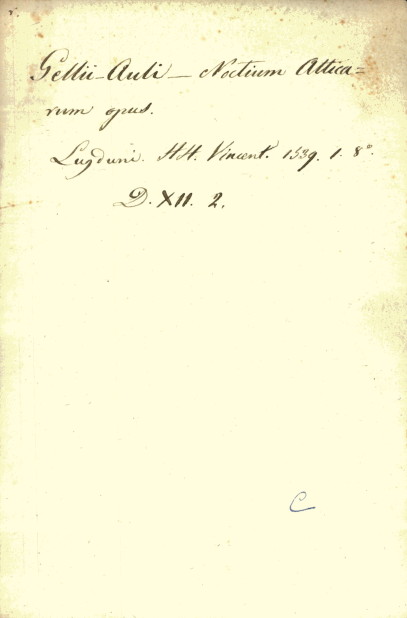 Gellii Auli — Noctium Attica=
rum opus.
Lugduni. HH. Vincent. 1539. 1. 8°.
D. XII. 2.
C